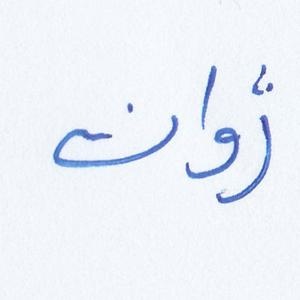 ژوانی